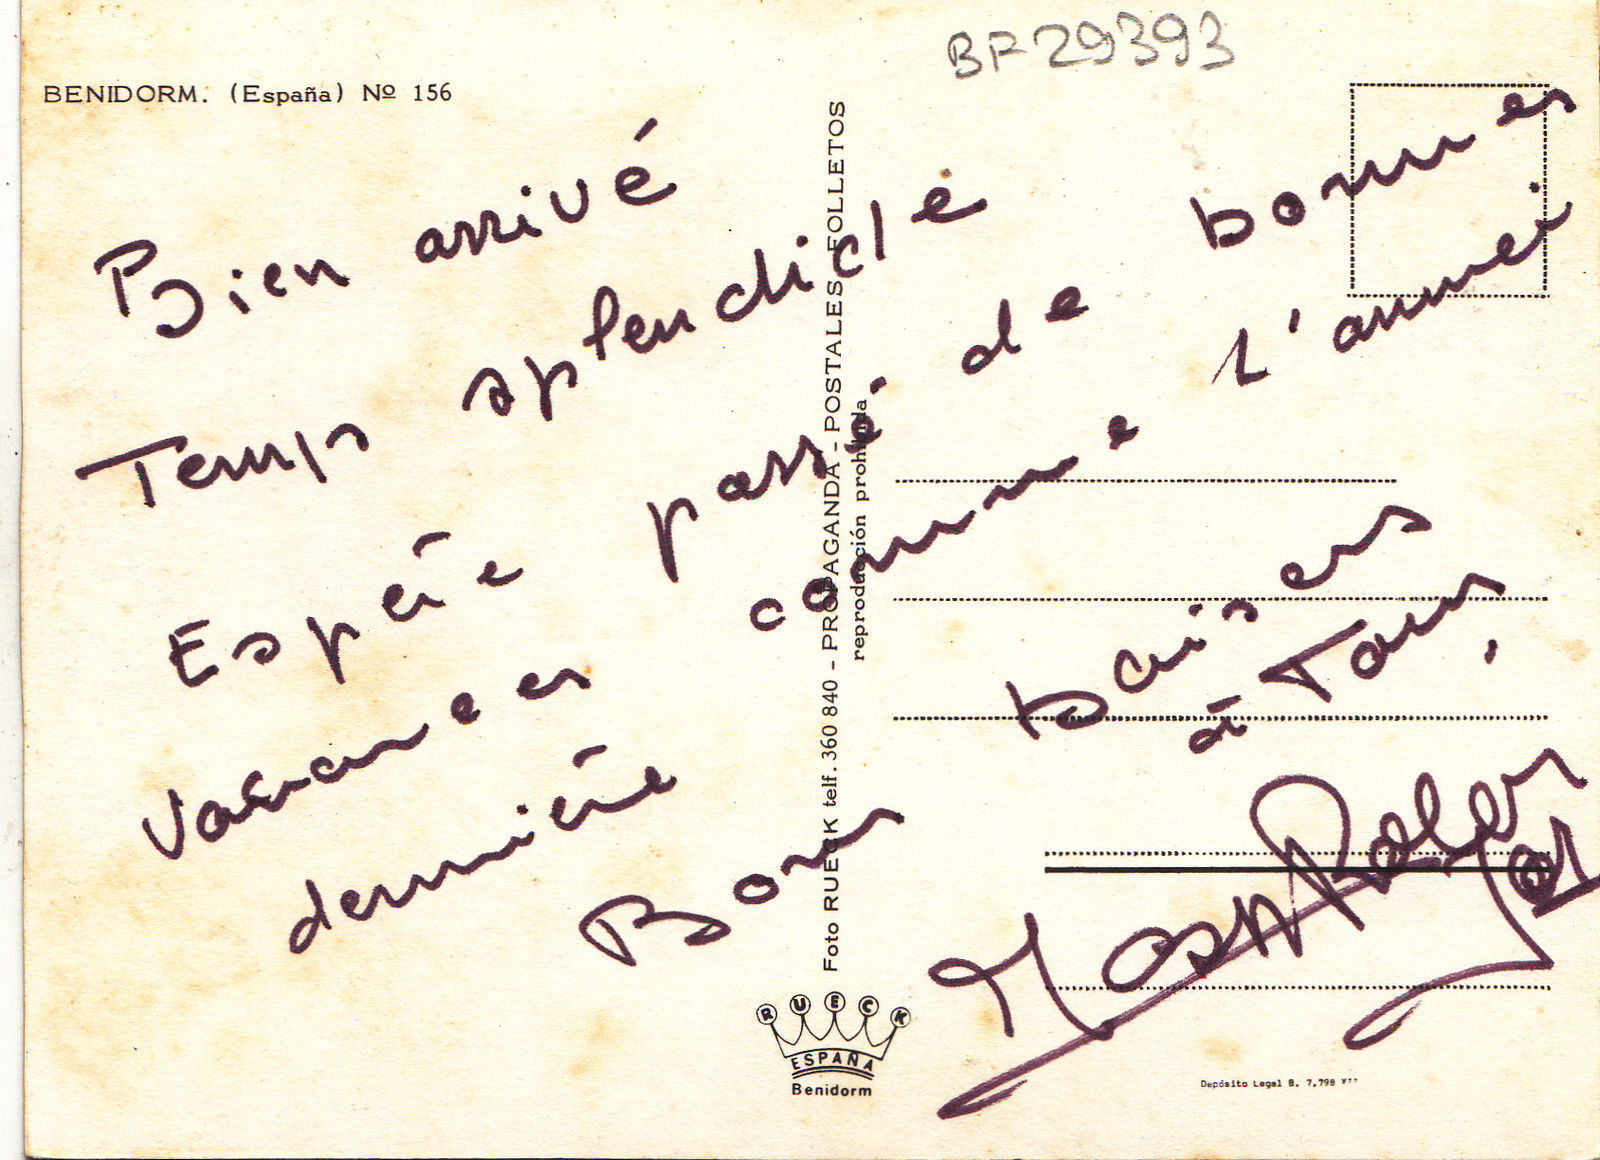 BF29393
BENIDORM. (España) Nº 156
Bien arrivé
Temps splendide
Espére passé de bonnes
vacances comme l'anneé
derniére
Bons baisers
à Tous,
Foto RUECK telf. 360 840 - PROPAGANDA - POSTALES - FOLLETOS
reproducción prohibida
RUECK
ESPAÑA
Benidorm
Depósito Legal B. 7.798